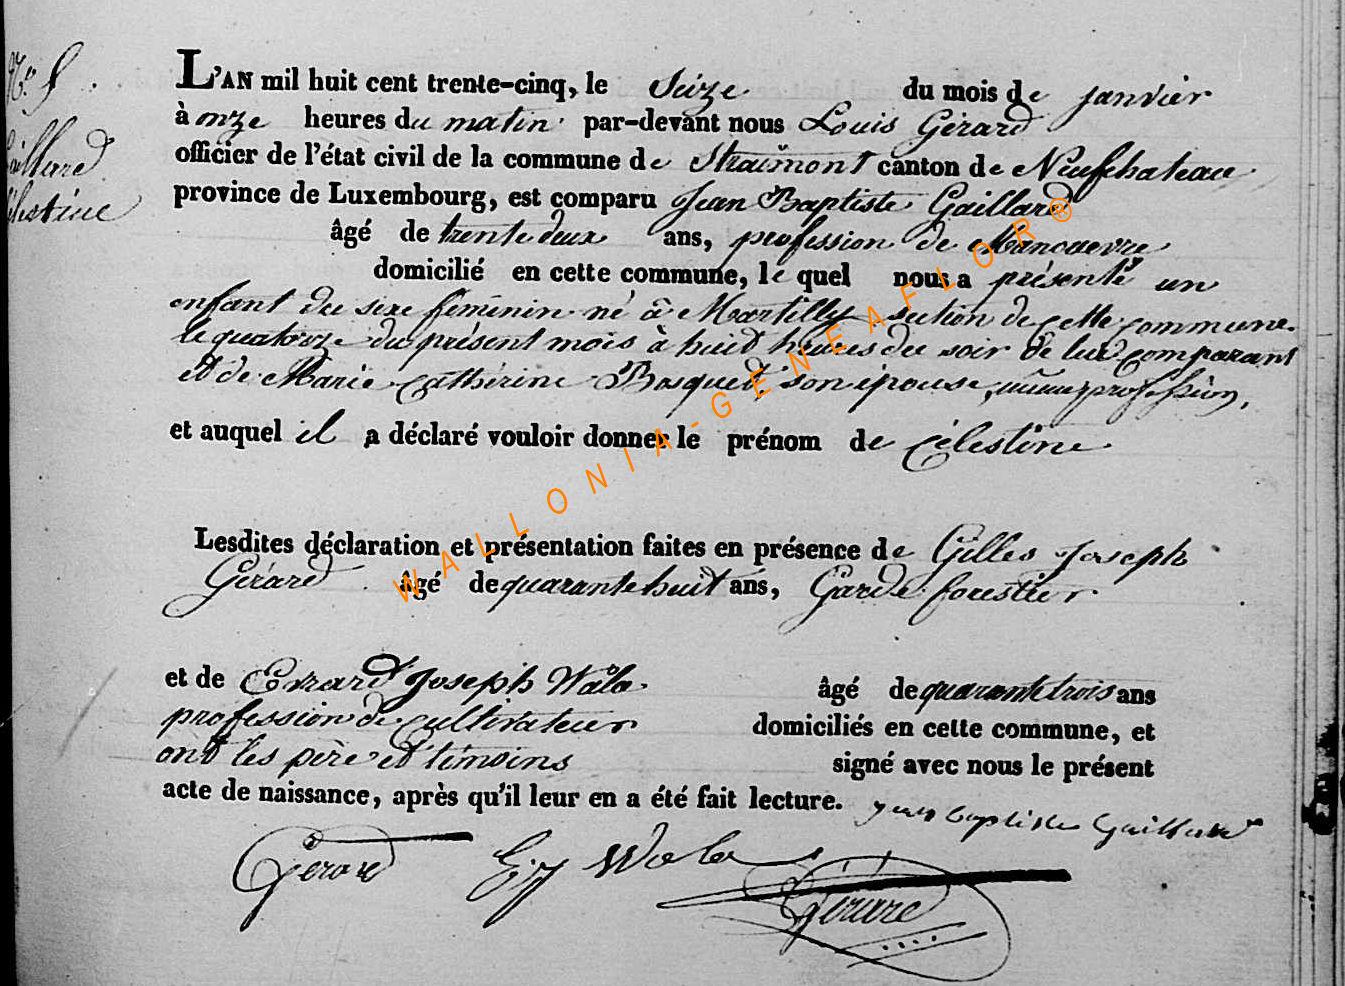 N.° 5.
Gaillard
Célestine
L'AN mil huit cent trente-cinq, le Seize du mois de janvier
à onze heures du matin par-devant nous Louis Gérard
officier de l'état civil de la commune de Straimont canton de Neufchateau
province de Luxembourg, est comparu Jean Baptiste Gaillard
âgé de trente deux ans, profession de Manoeuvre
domicilié en cette commune, le quel nous a présenté un
enfant du sexe féminin né à Martilly section de cette commune.
le quatorze du présent mois à huit heures du soir de lui comparant
et de Marie Catherine Bosquet, son épouse, même profession,
et auquel il a déclaré vouloir donner le prénom de Célestine
Lesdites déclaration et présentation faites en présence de Gilles Joseph
Gérard âgé de quarante huit ans, Garde forestier
et de Errard Joseph Wala âgé de quarante trois ans
profession de cultivateur domiciliés en cette commune, et
ont les père et témoins signé avec nous le présent
acte de naissance, après qu'il leur en a été fait lecture. jean baptiste Gaillard
Gérard EJ Wala Gérard
WALLONIA-GENEAFLOR®